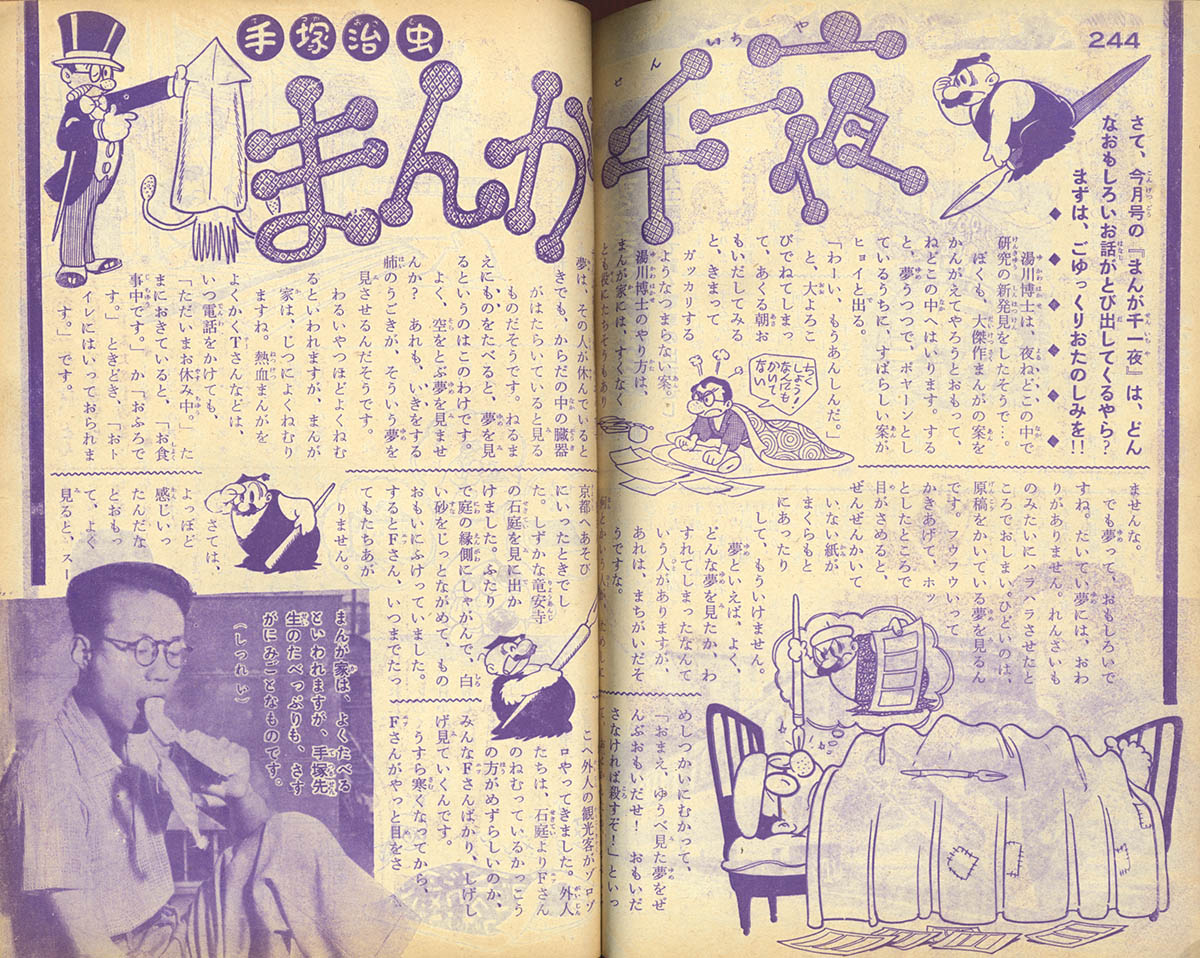 244
手塚治虫
まんが千一夜
さて、今月号の『まんが千一夜』は、どん
なおもしろいお話がとび出してくるやら?
まずは、ごゆっくりおたのしみを!!
湯川博士は、夜ねどこの中で
研究の新発見をしたそうで…。
ぼくも、大傑作まんがの案を
かんがえてやろうとおもって、
ねどこの中へはいります。する
と、夢うつつで、ポヤーンとし
ているうちに、すばらしい案が
ヒョイと出る。
「わーい、もうあんしんだ。」
と、大よろこ
びでねてしまっ
て、あくる朝お
もいだしてみる
と、きまって
ガッカリする
ようなつまらない案。
湯川博士のやり方は、
まんが家には、すくなく
とも役にたちそうもあり
ちくしょう!
なんにも
かいて
ない
ませんな。
でも夢って、おもしろいで
すね。たいてい夢には、おわ
りがありません。れんさいも
のみたいにハラハラさせたと
ころでおしまい。ひどいのは、
原稿をかいている夢を見るん
です。フウフウいって
かきあげて、ホッ
としたところで
目がさめると、
ぜんぜんかいて
いない紙が
まくらもと
にあったり
して、もういけません。
夢といえば、よく、
どんな夢を見たか、わ
すれてしまったなんて
いう人がありますが、
あれは、まちがいだそ
うですな。
めしつかいにむかって、
「おまえ、ゆうべ見た夢をぜ
んぶおもいだせ! おもいだ
さなければ殺すぞ!」といっ
夢は、その人が休んでいると
きでも、からだの中の臓器
がはたらいていると見る
ものだそうです。ねるま
えにものをたべると、夢を見
るというのはこのわけです。
よく、空をとぶ夢を見ませ
んか? あれも、いきをする
肺のうごきが、そういう夢を
見させるんだそうです。
わるいやつほどよくねむ
るといわれますが、まんが
家は、じつによくねむり
ますね。熱血まんがを
よくかくTさんなどは、
いつ電話をかけても、
「ただいまお休み中」た
まにおきていると、「お食
事中です。」か「おふろで
す。」ときどき、「おト
イレにはいっておられま
す。」です。
京都へあそび
にいったときでし
た。しずかな竜安寺
の石庭を見に出か
けました。ふたり
で庭の縁側にしゃがんで、白
い砂をじっとながめて、もの
おもいにふけっていました。
するとFさん、いつまでたっ
てもたちあが
りません。
さては、
よっぽど
感じいっ
たんだな
とおもっ
て、よく
見ると、スー
こへ外人の観光客がゾロゾ
ロやってきました。外人
たちは、石庭よりFさん
のねむっているかっこう
の方がめずらしいのか、
みんなFさんばかり、しげし
げ見ていくんです。
うすら寒くなってから、
Fさんがやっと目をさ
まんが家は、よくたべる
といわれますが、手塚先
生のたべっぷりも、さす
がにみごとなものです。
(しつれい)